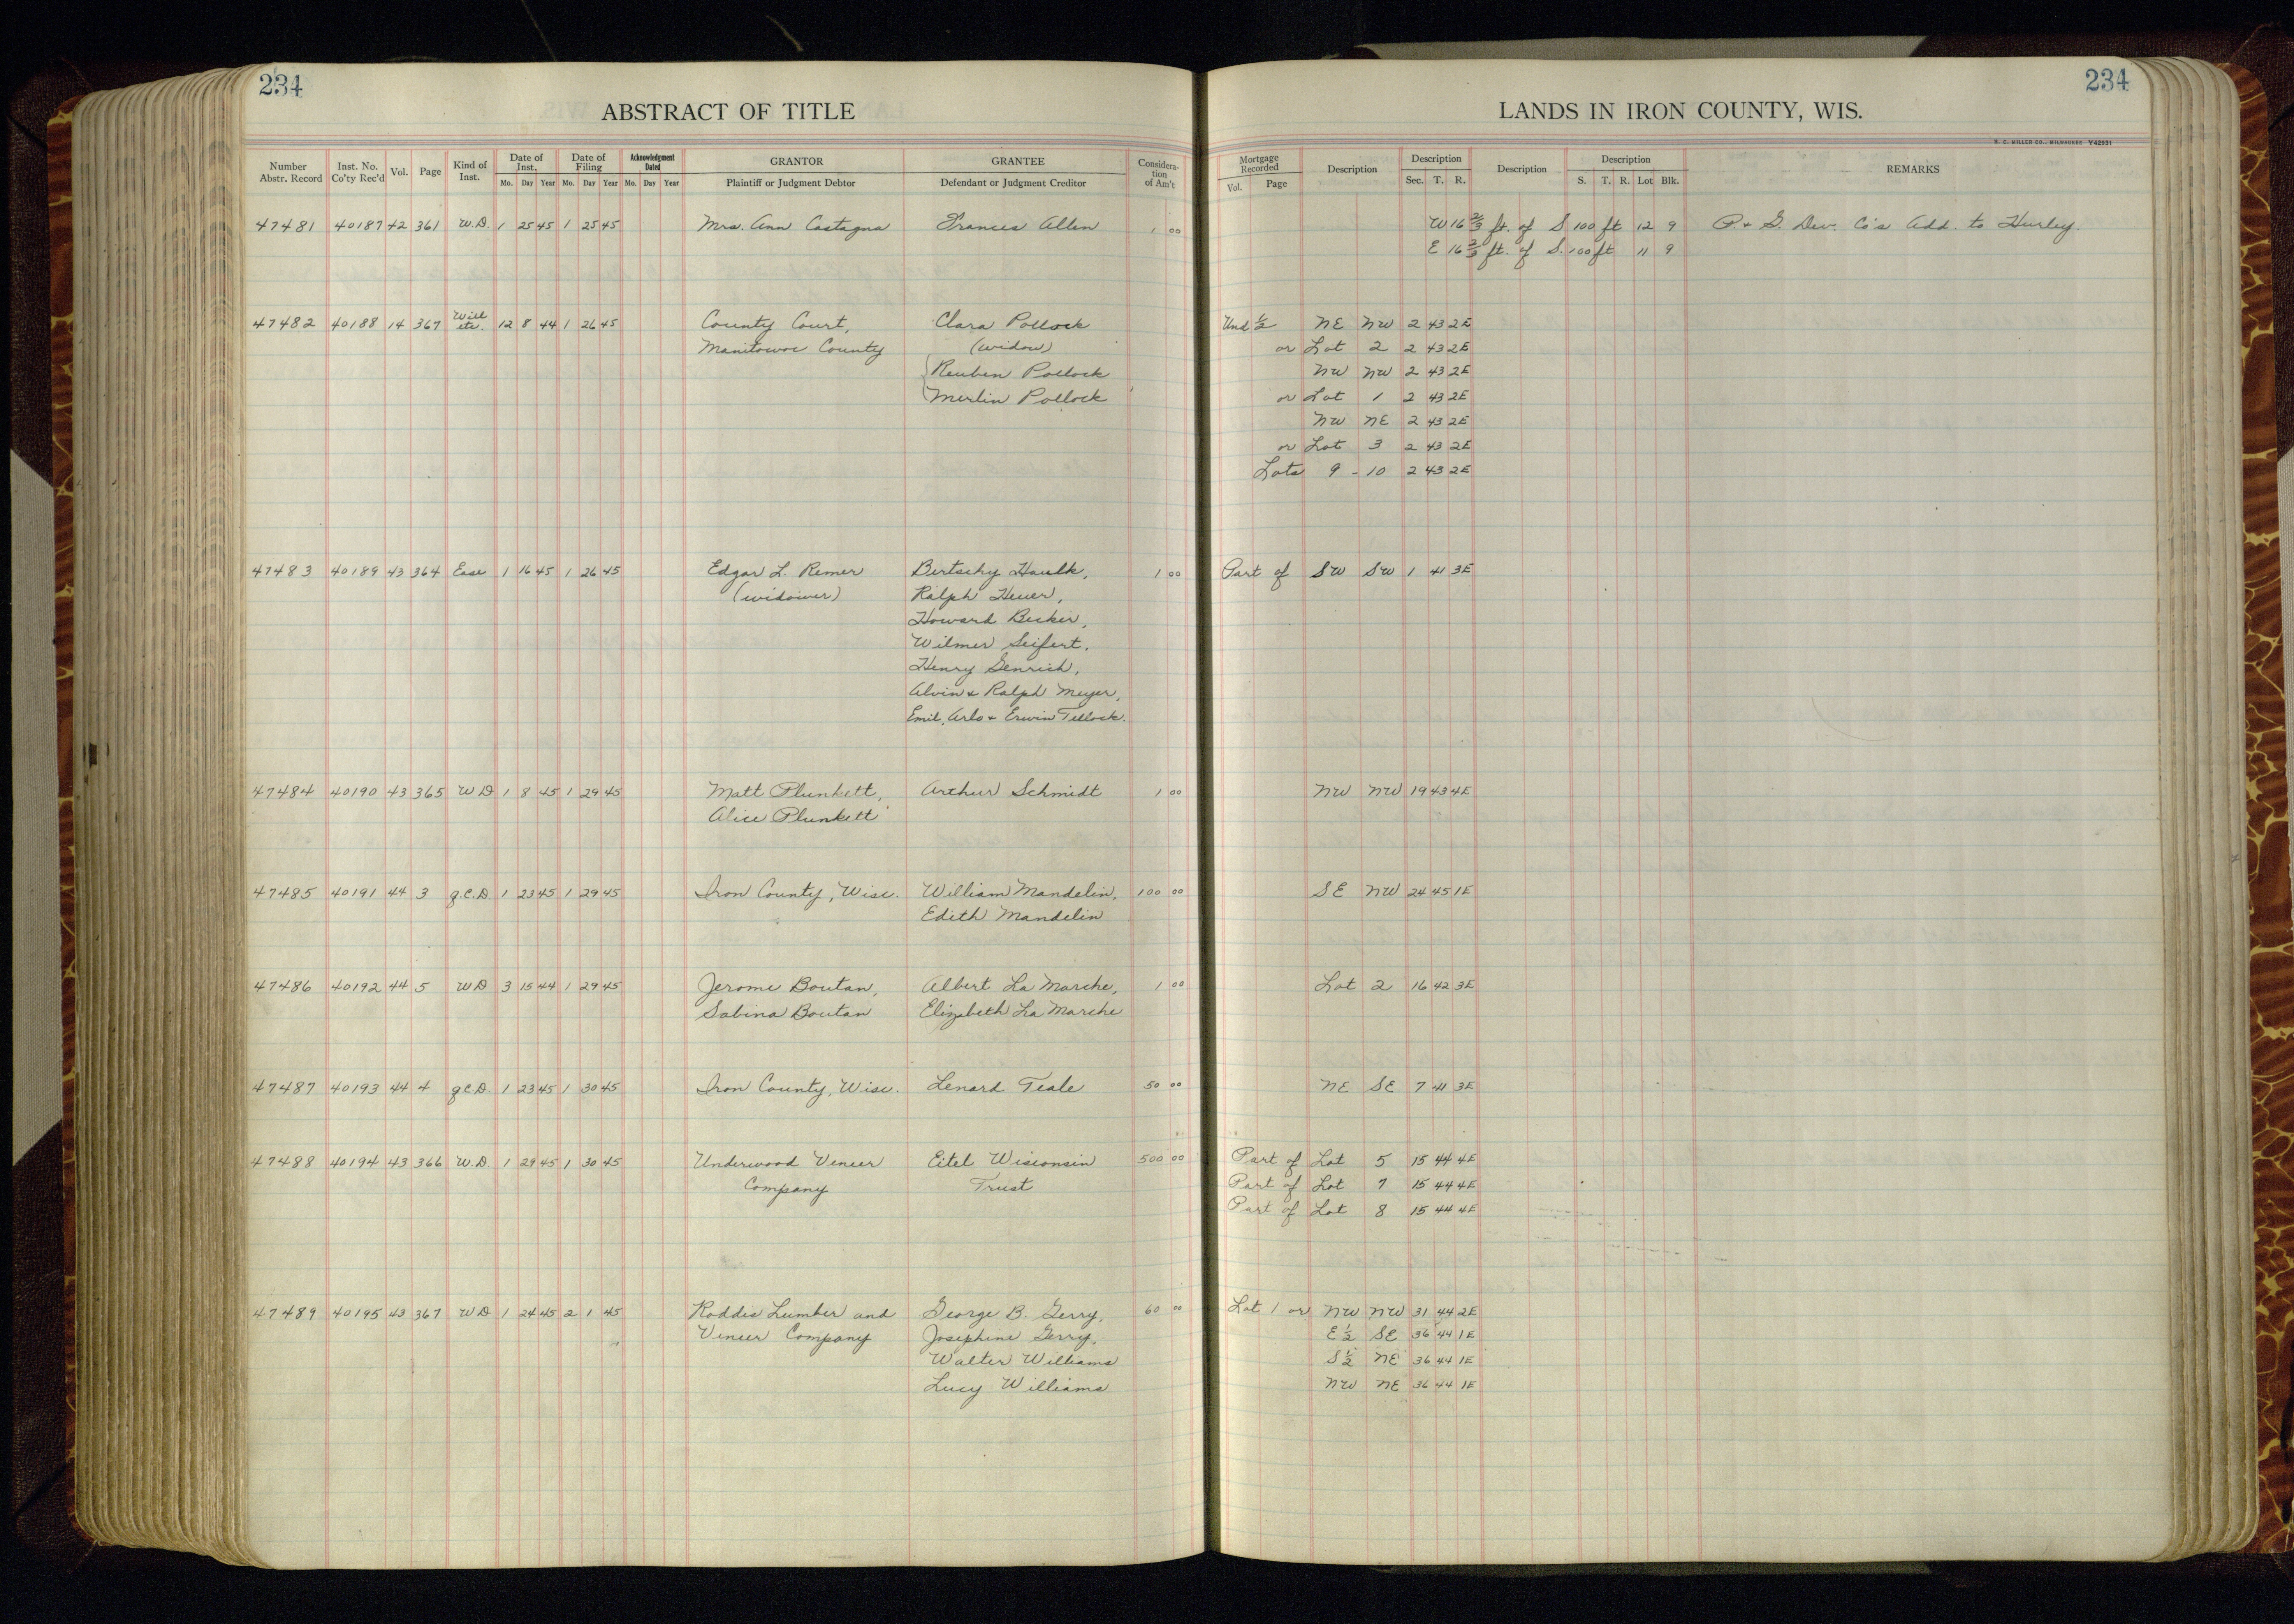 234
234
ABSTRACT OF TITLE
LANDS IN IRON COUNTY, WIS.
H. C. MILLER CO., MILWAUKEE Y42931
Number Abstr. Record | Inst. No. Co'ty Rec'd | Vol. | Page | Kind of Inst. | Date of Inst. Mo. Day Year | Date of Filing Mo. Day Year | Acknowledgment Dated Mo. Day Year | GRANTOR Plaintiff or Judgment Debtor | GRANTEE Defendant or Judgment Creditor | Considera-tion of Am't | Mortgage Recorded Vol. Page | Description | Description Sec. T. R. | Description | Description S. T. R. Lot Blk. | REMARKS
47481 40187 42 361 W.D. 1 25 45 1 25 45 Mrs. Ann Castagna Frances Allen 1 00 W 16 2/3 ft. of S 100 ft 12 9 P. & G. Dev. Co's Add. to Hurley.
E 16 2/3 ft. of S. 100 ft 11 9
47482 40188 14 367 Will etc. 12 8 44 1 26 45 County Court, Clara Pollock Und 1/2 NE NW 2 43 2E
Manitowoc County (widow) or Lot 2 2 43 2E
Reuben Pollock NW NW 2 43 2E
Merlin Pollock or Lot 1 2 43 2E
NW NE 2 43 2E
or Lot 3 2 43 2E
Lots 9 - 10 2 43 2E
47483 40189 43 364 Ease 1 16 45 1 26 45 Edgar L. Remer Bertschy Haulk, 1 00 Part of SW SW 1 41 3E
(widower) Ralph Heuer,
Howard Becker,
Wilmer Seifert,
Henry Genrich,
Alvin & Ralph Meyer,
Emil, Arlo & Erwin Tellock.
47484 40190 43 365 WD 1 8 45 1 29 45 Matt Plunkett, Arthur Schmidt 1 00 NW NW 19 43 4E
Alice Plunkett
47485 40191 44 3 q.C.D. 1 23 45 1 29 45 Iron County, Wisc. William Mandelin, 100 00 SE NW 24 45 1E
Edith Mandelin
47486 40192 44 5 WD 3 15 44 1 29 45 Jerome Boutan, Albert La Marche, 1 00 Lot 2 16 42 3E
Sabina Boutan Elizabeth La Marche
47487 40193 44 4 q.C.D. 1 23 45 1 30 45 Iron County, Wisc. Lenard Teale 50 00 NE SE 7 41 3E
47488 40194 43 366 W.D. 1 29 45 1 30 45 Underwood Veneer Eitel Wisconsin 500 00 Part of Lot 5 15 44 4E
Company Trust Part of Lot 7 15 44 4E
Part of Lot 8 15 44 4E
47489 40195 43 367 WD 1 24 45 2 1 45 Roddis Lumber and George B. Gerry, 60 00 Lot 1 or NW NW 31 44 2E
Veneer Company Josephine Gerry, E 1/2 SE 36 44 1E
Walter Williams S 1/2 NE 36 44 1E
Lucy Williams NW NE 36 44 1E